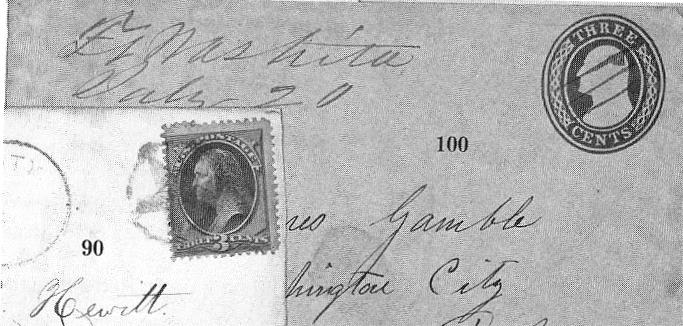 Ft Washita
July 20
THREE
CENTS
100
U.S. POSTAGE
THREE 3 CENTS
90
Gamble
hington City
Hewitt.